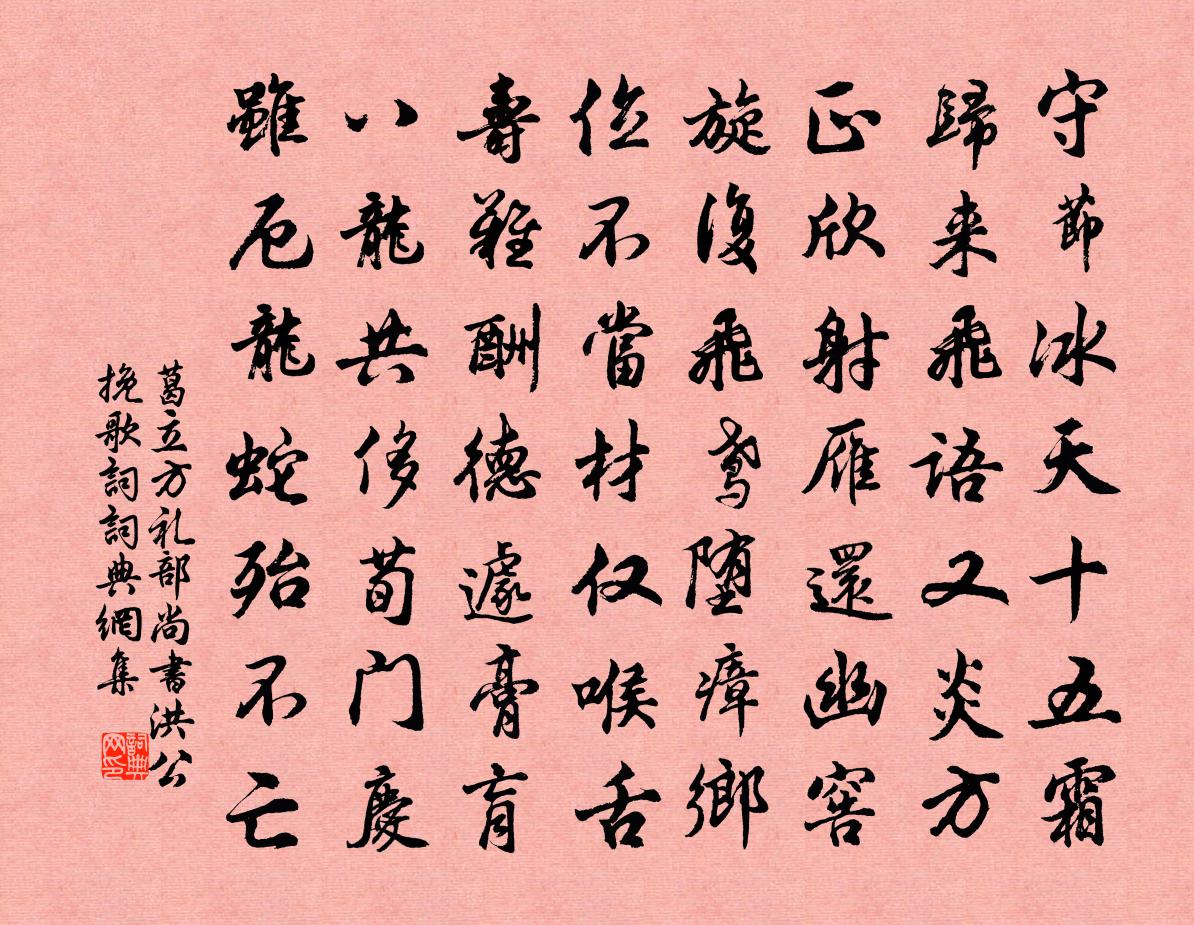 守節冰天十五霜
歸来飛語又炎方
正欣射雁還幽窖
旋復飛鸢墮瘴鄉
位不當材仅喉舌
壽難酬德遽膏肓
八龍共侈荀门慶
雖厄龍蛇殆不亡
葛立方礼部尚書洪公
挽歌詞詞典網集
詞典网印